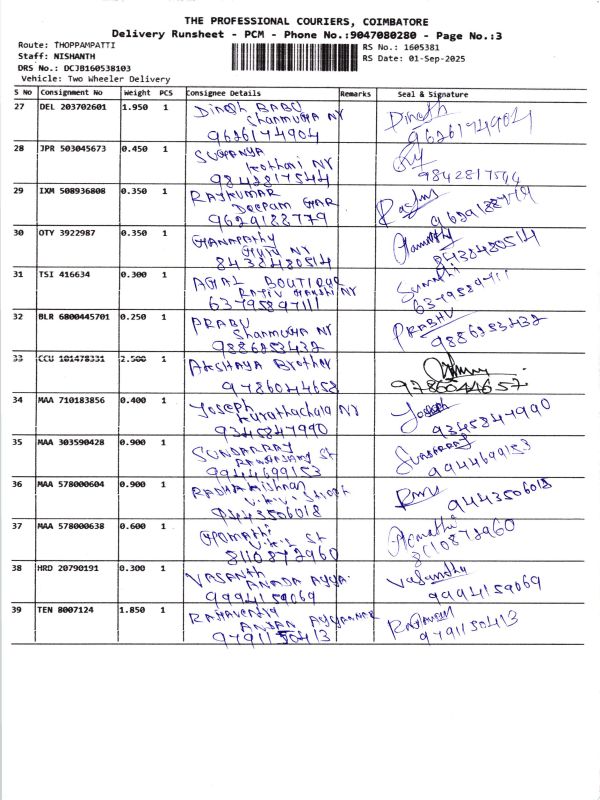 THE PROFESSIONAL COURIERS, COIMBATORE
Delivery Runsheet - PCM - Phone No.:9047080280 - Page No.:3
Route: THOPPAMPATTI
RS No.: 1605381
Staff: NISHANTH
RS Date: 01-Sep-2025
DRS No.: DCJB160538103
Vehicle: Two Wheeler Delivery
S No Consignment No Weight PCS Consignee Details Remarks Seal & Signature
27 DEL 203702601 1.950 1 Dinesh BABU Dinesh
Shanmuga NY
9626174904 9626174904
28 JPR 503045673 0.450 1 SUGANYA
Kothari NY
9842817544 9842817544
29 IXM 508936808 0.350 1 RAJKUMAR
Deepam GAR
9629188779 9629188779
30 OTY 3922987 0.350 1 GANAPATHY
NY
8438480514 8438480514
31 TSI 416634 0.300 1 AGAL BOUTIQUE Sumathi
RAJIV GANDHI NY
6379589711
32 BLR 6800445701 0.250 1 PRABU PRABHU
Shanmuga NY
9886253432 9886253432
33 CCU 101478331 2.500 1 Akshaya Brother
9786044658 9786044657
34 MAA 710183856 0.400 1 Joseph Joseph
NY
9345847990 9345847990
35 MAA 303590428 0.900 1 SUNDARRAJ Sundarraj
St
9944699153 9944699153
36 MAA 578000604 0.900 1 RADHA Krishnan
9443506018 9443506018
37 MAA 578000638 0.600 1 GOMATHI Gomathi
V.K.L St
8110872960 8110872960
38 HRD 20790191 0.300 1 VASANTH Vasandha
9994159069 9994159069
39 TEN 8007124 1.850 1
AYYANNAR
9791150413 9791150413